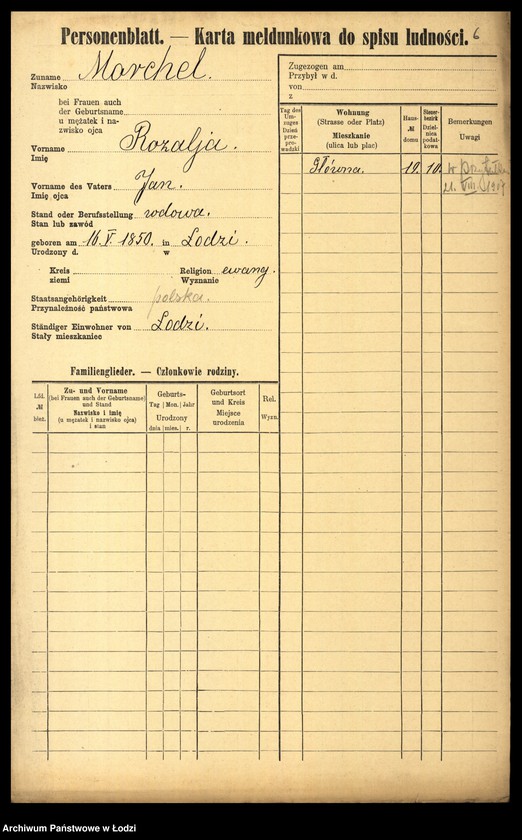 Personenblatt. — Karta meldunkowa do spisu ludności. 6
Zuname Marchel.
Nazwisko
bei Frauen auch
der Geburtsname
u mężatek i na-
zwisko ojca
Vorname Rozalja.
Imię
Vorname des Vaters Jan.
Imię ojca
Stand oder Berufsstellung wdowa.
Stan lub zawód
geboren am 16.V.1850. in Lodzi.
Urodzony d. w
Kreis Religion ewang.
ziemi Wyznanie
Staatsangehörigkeit polska.
Przynależność państwowa
Ständiger Einwohner von Lodzi.
Stały mieszkaniec
Familienglieder. — Członkowie rodziny.
Lfd.
№
bież.
Zu- und Vorname
(bei Frauen auch der Geburtsname)
und Stand
Nazwisko i imię
(u mężatek i nazwisko ojca)
i stan
Geburts-
Tag Mon. Jahr
Urodzony
dnia mies. r.
Geburtsort
und Kreis
Miejsce
urodzenia
Rel.
Wyzn.
Zugezogen am
Przybył w d.
von
z
Tag des
Um-
zuges
Dzień
prze-
prowadzki
Wohnung
(Strasse oder Platz)
Mieszkanie
(ulica lub plac)
Haus-
№
domu
Steuer-
bezirk
Dziel-
nica
podat-
kowa
Bemerkungen
Uwagi
Główna. 19. 10.
21. VIII
Archiwum Państwowe w Łodzi